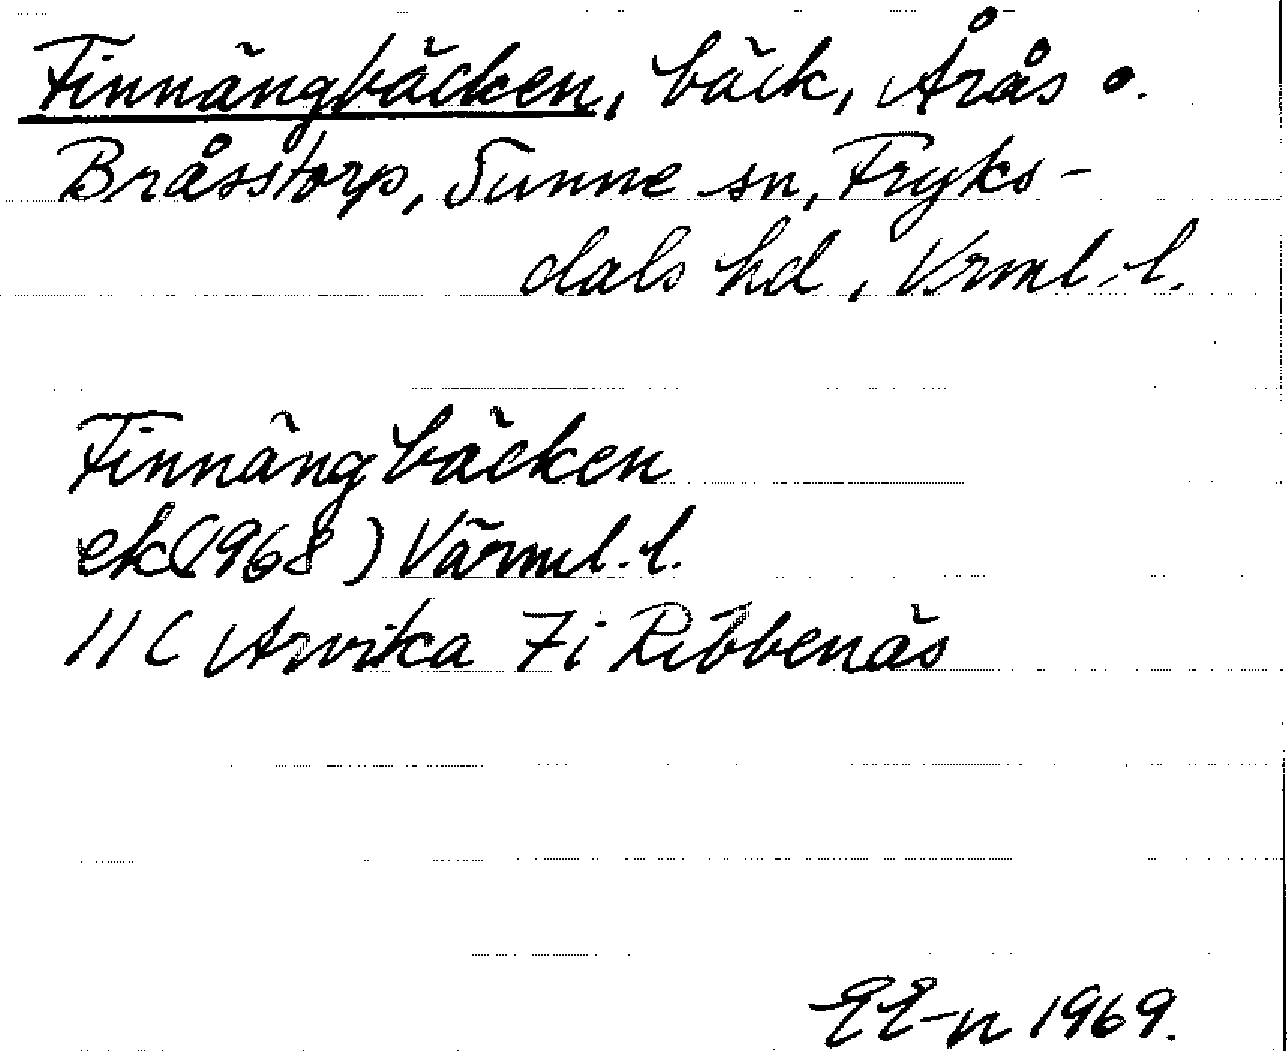 Finnängbäcken, bäck, Årås o.
Bråsstorp, Sunne sn, Fryks-
dals hd, Vrml. l.
Finnängbäcken
ek (1968) Värml. l.
11 C Arvika 7i Ribbenäs
EE-n 1969.